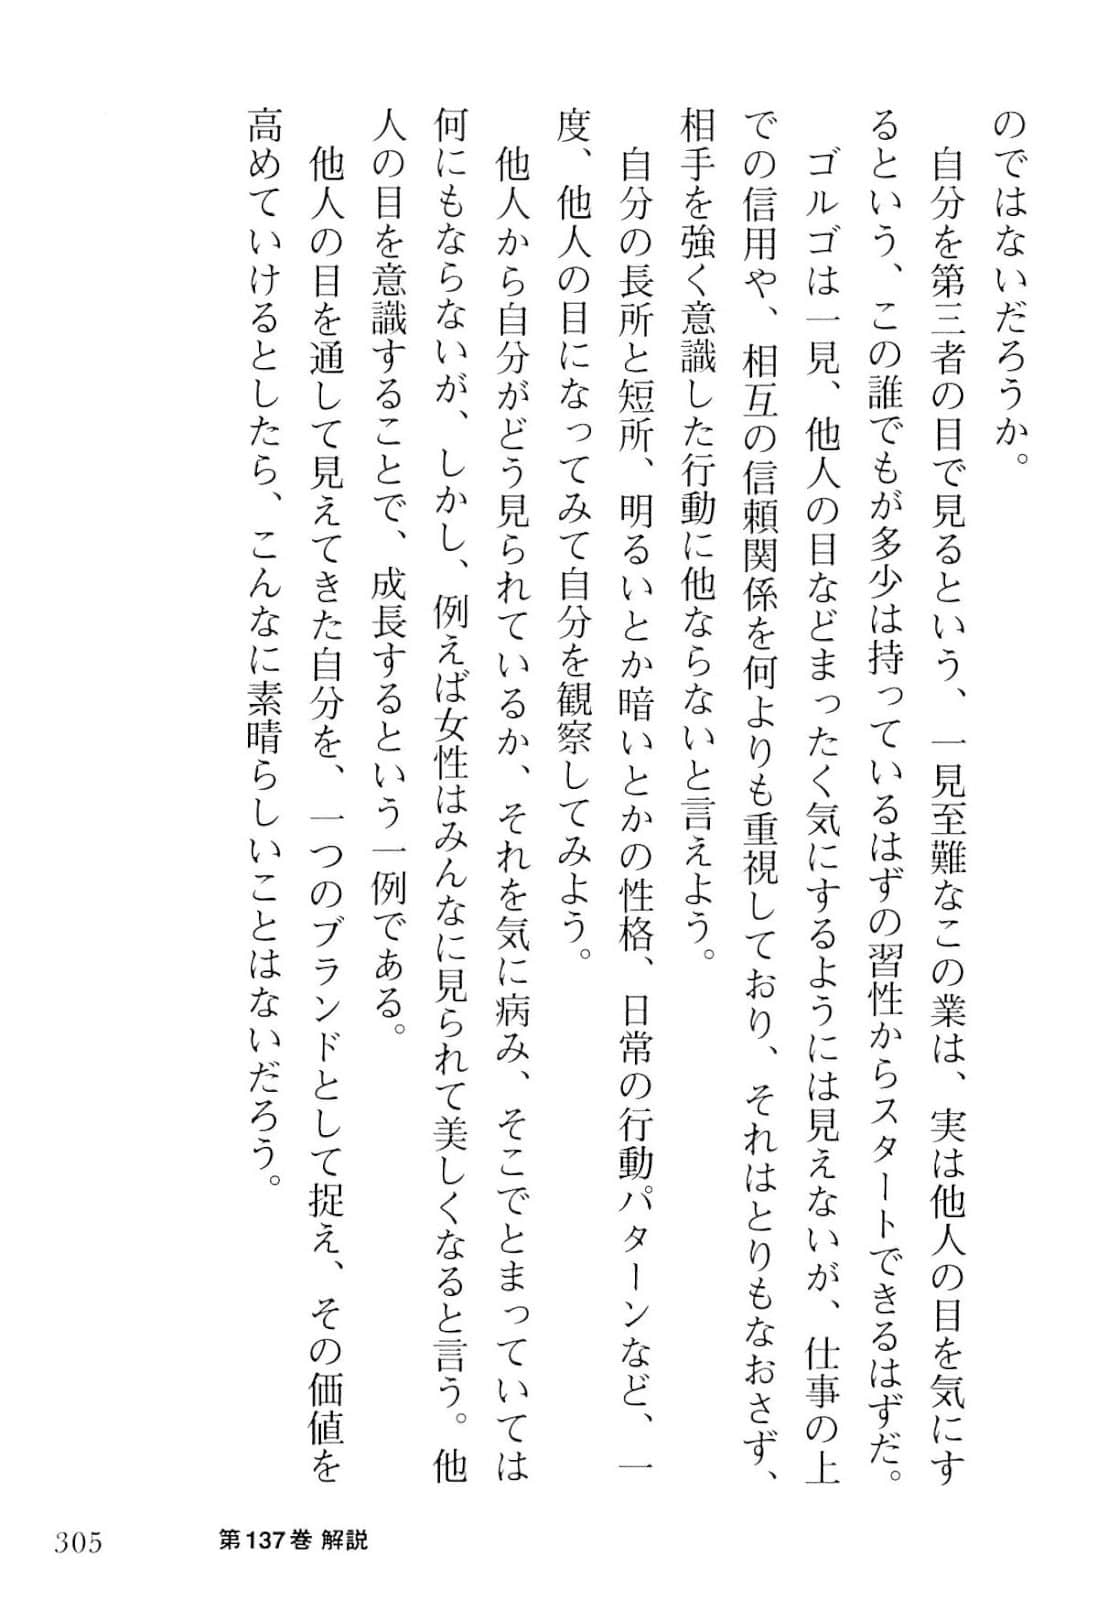 のではないだろうか。
自分を第三者の目で見るという、一見至難なこの業は、実は他人の目を気にす
るという、この誰でもが多少は持っているはずの習性からスタートできるはずだ。
ゴルゴは一見、他人の目などまったく気にするようには見えないが、仕事の上
での信用や、相互の信頼関係を何よりも重視しており、それはとりもなおさず、
相手を強く意識した行動に他ならないと言えよう。
自分の長所と短所、明るいとか暗いとかの性格、日常の行動パターンなど、一
度、他人の目になってみて自分を観察してみよう。
他人から自分がどう見られているか、それを気に病み、そこでとまっていては
何にもならないが、しかし、例えば女性はみんなに見られて美しくなると言う。他
人の目を意識することで、成長するという一例である。
他人の目を通して見えてきた自分を、一つのブランドとして捉え、その価値を
高めていけるとしたら、こんなに素晴らしいことはないだろう。
305
第137巻 解説